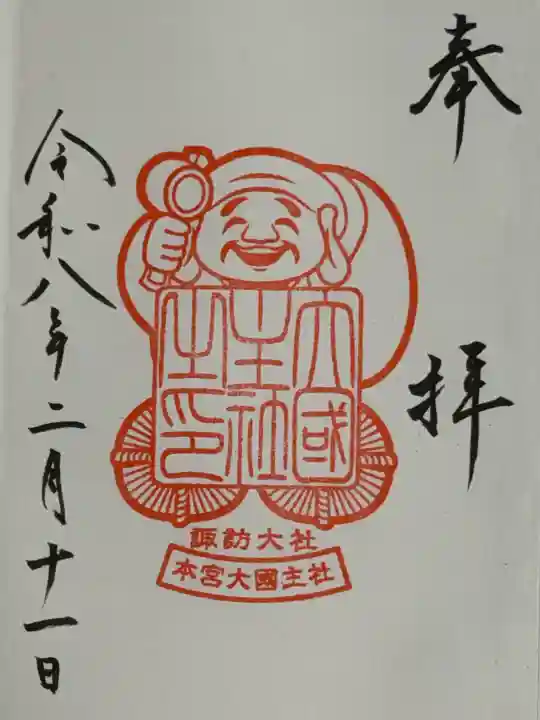 奉拝
大國
主社
之印
諏訪大社
本宮大國主社
令和八年二月十一日